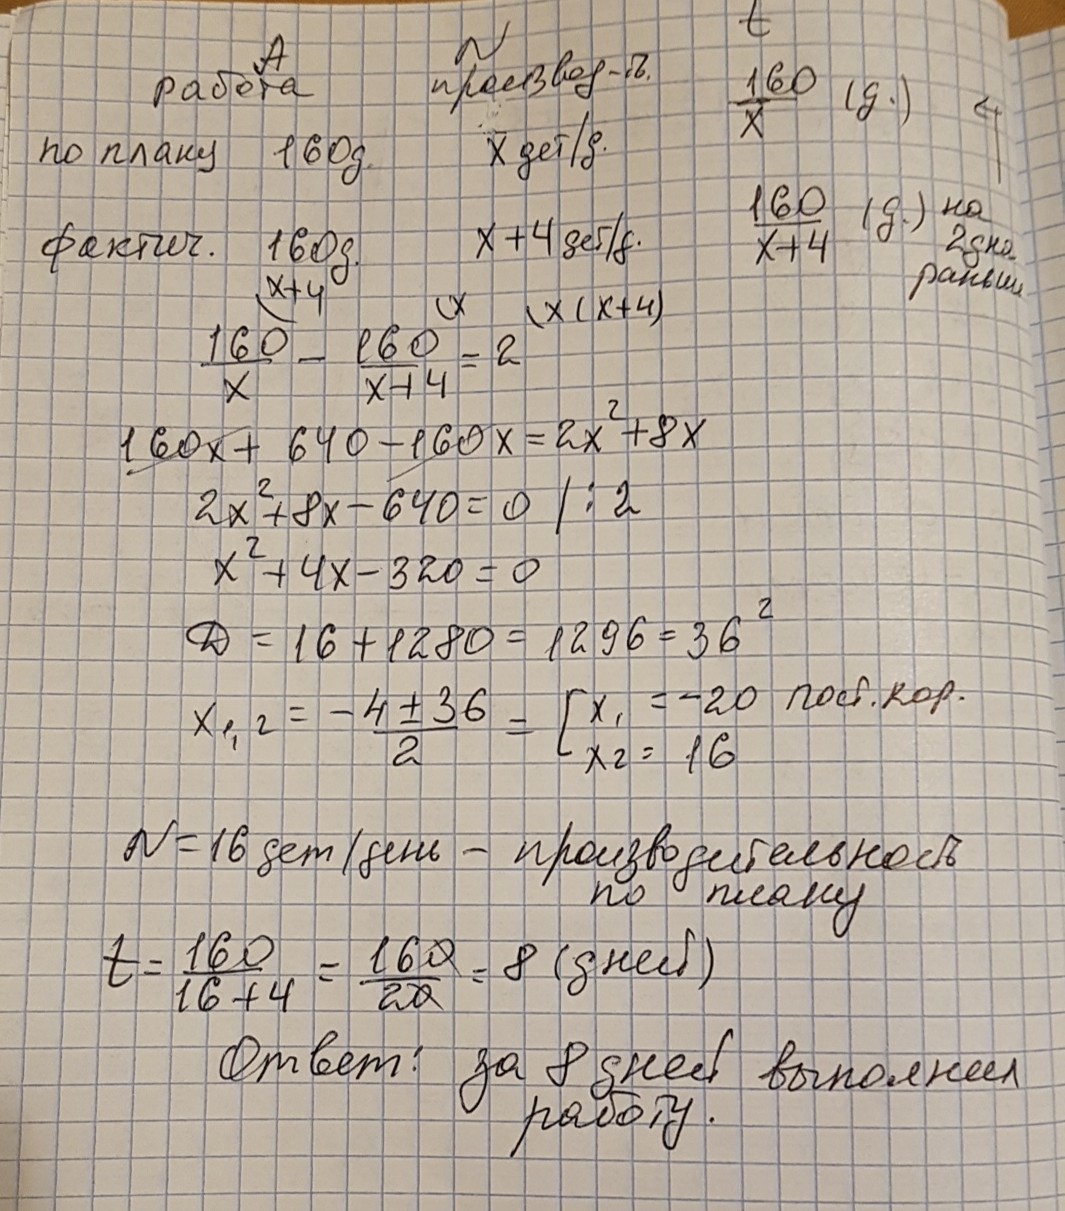 A N t
работа производ-ть. 160/x (д.)
по плану 160д. x дет/д.
фактич. 160д. x+4 дет/д. 160/(x+4) (д.) на
2 дня
раньше
x+4 x x(x+4)
160/x - 160/(x+4) = 2
160x + 640 - 160x = 2x² + 8x
2x² + 8x - 640 = 0 | : 2
x² + 4x - 320 = 0
D = 16 + 1280 = 1296 = 36²
x₁,₂ = (-4 ± 36)/2 = [ x₁ = -20 пост. кор.
x₂ = 16
N = 16 дет/день - производительность
по плану
t = 160/(16+4) = 160/20 = 8 (дней)
Ответ: за 8 дней выполнил
работу.